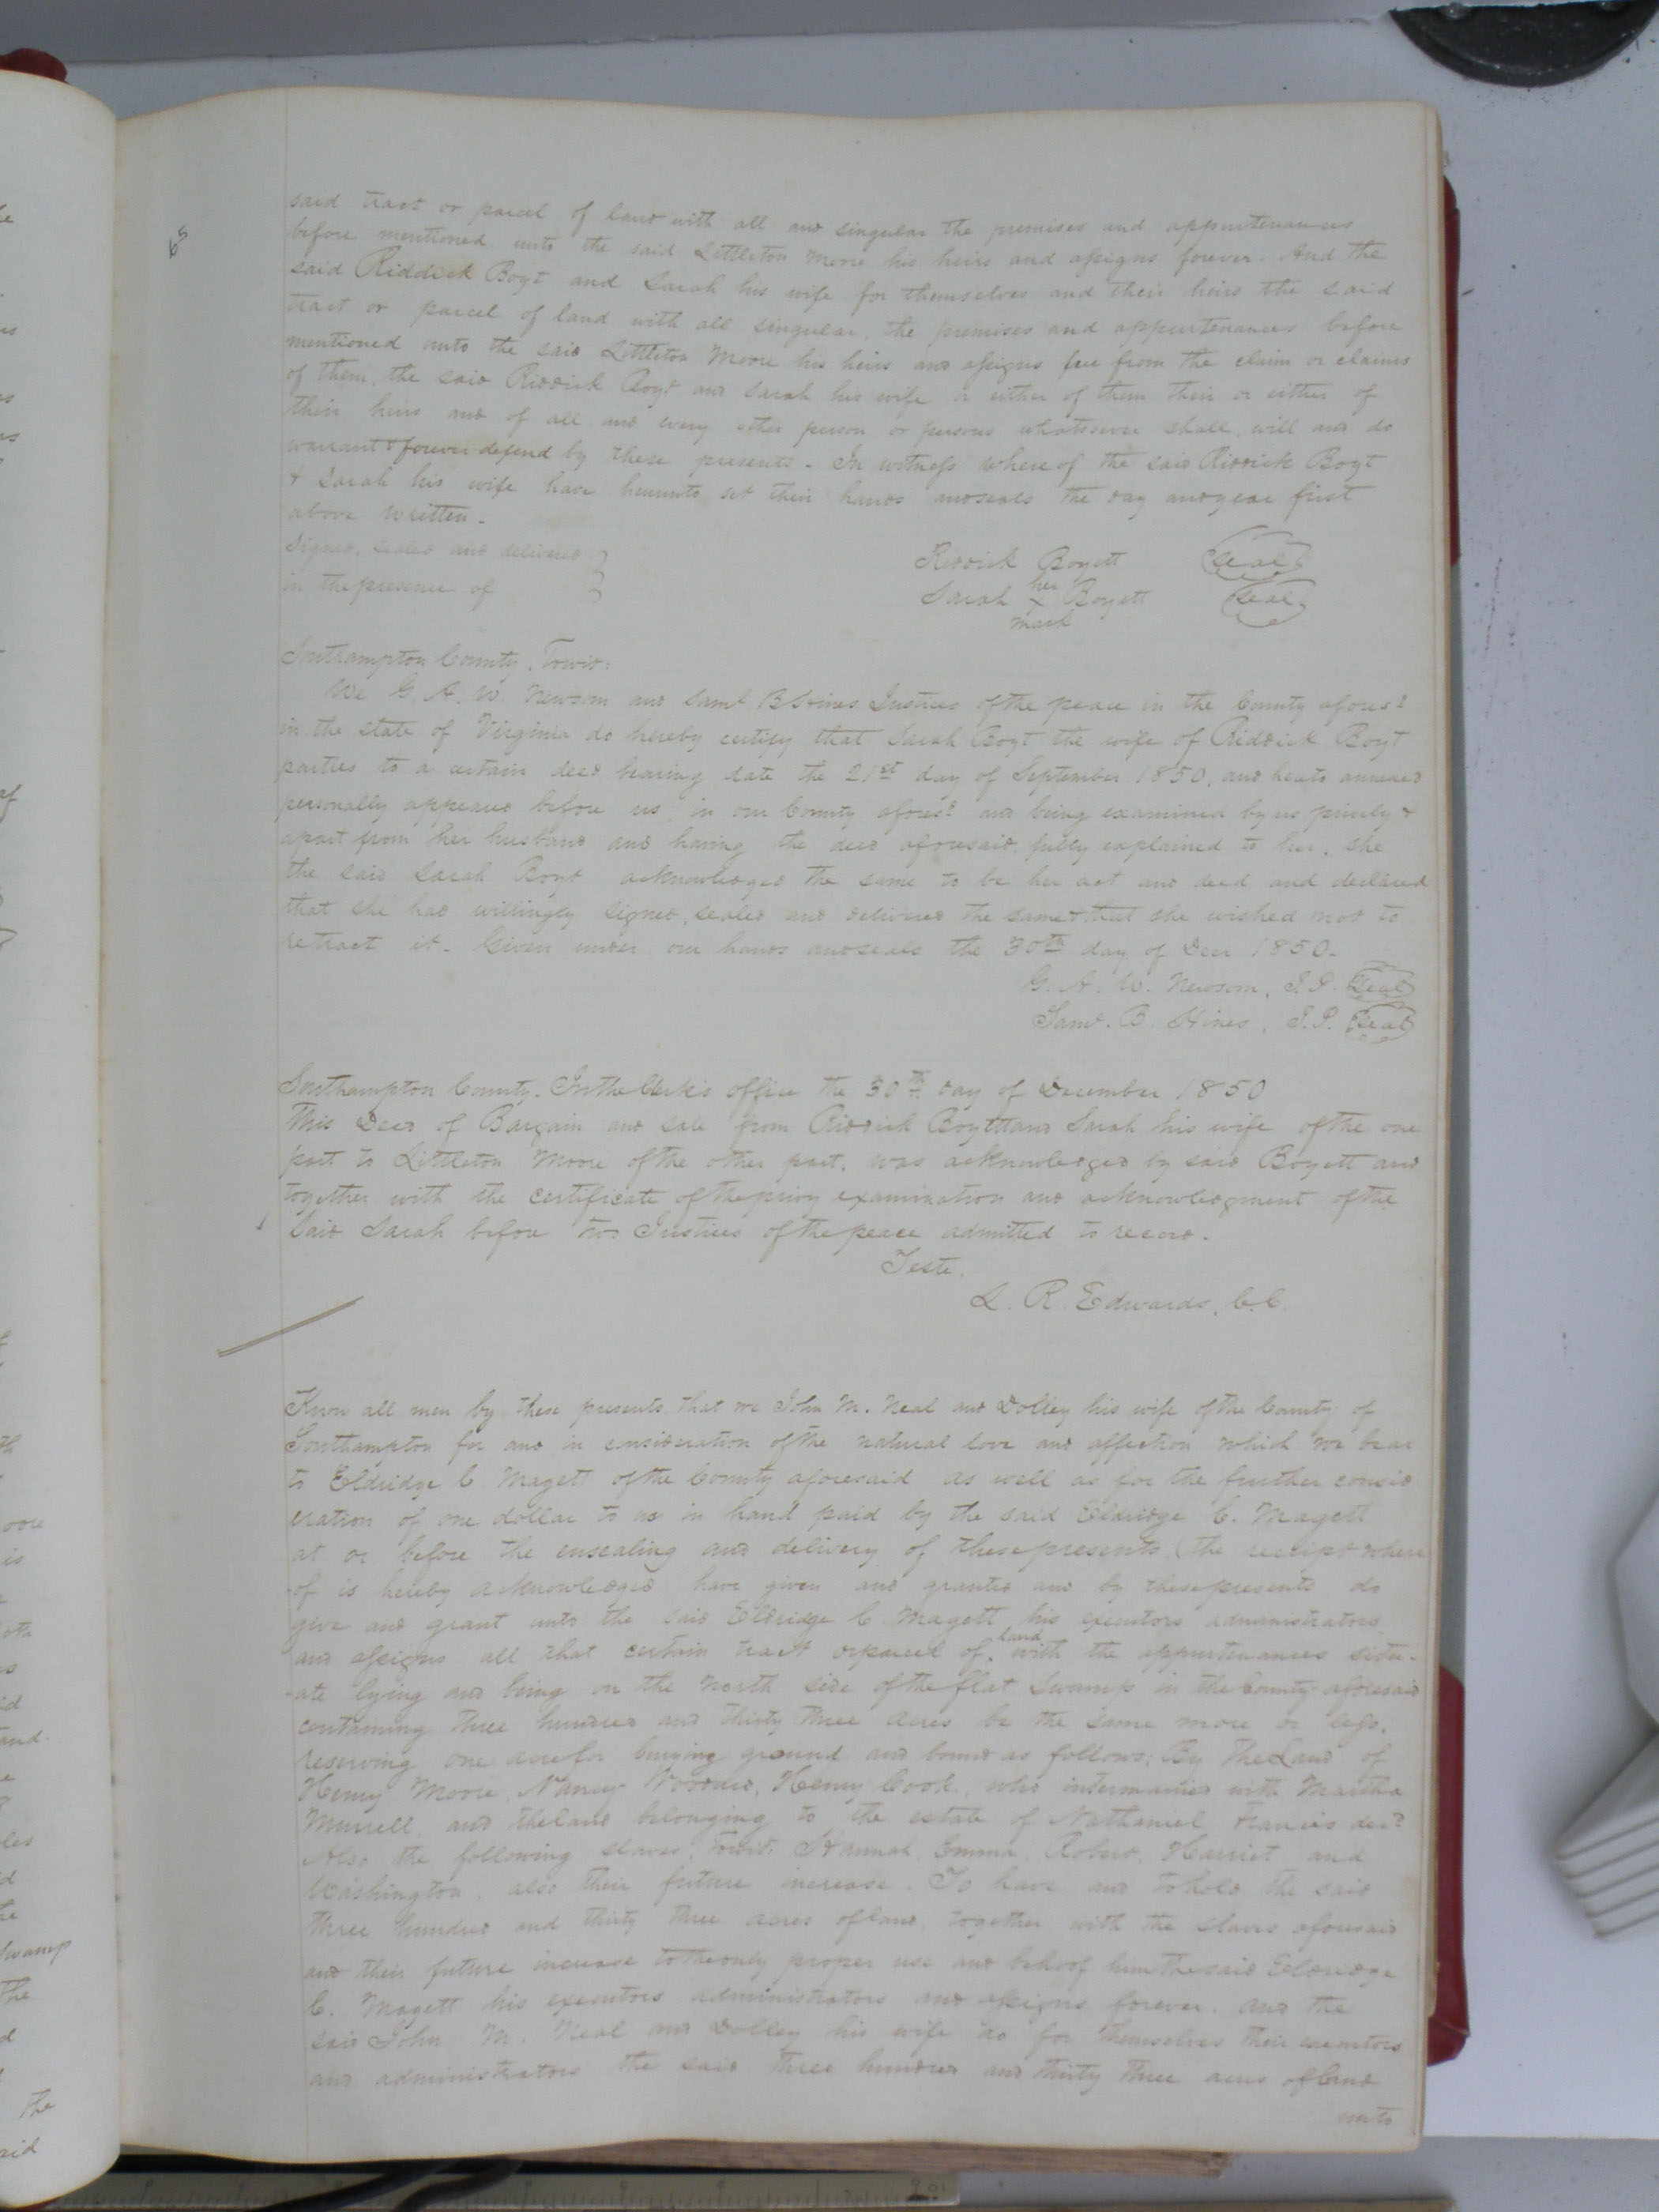 65
said tract or parcel of land with all and singular the premises and appurtenances
before mentioned unto the said Littleton Moore his heirs and assigns forever. And the
said Riddick Boyt and Sarah his wife for themselves and their heirs the said
tract or parcel of land with all singular, the premises and appurtenances before
mentioned unto the said Littleton Moore his heirs and assigns free from the claim or claims
of them, the said Riddick Boyt and Sarah his wife or either of them their or either of
their heirs and of all and every other person or persons whatsoever shall, will and do
warrant & forever defend by these presents. In witness whereof the said Riddick Boyt
& Sarah his wife have hereunto set their hands and seals the day and year first
above written.
Signed, sealed and delivered
in the presence of
Riddick Boyett Seal
Sarah her x mark Boyett Seal
Southampton County, Towit:
We G. A. W. Newsom and Saml B Hines Justices of the peace in the County aforesd
in the state of Virginia do hereby certify that Sarah Boyt the wife of Riddick Boyt
parties to a certain deed bearing date the 21st day of September 1850, and hereto annexed
personally appeared before us, in our County aforesd and being examined by us privily &
apart from her husband and having the deed aforesaid fully explained to her, she
the said Sarah Boyt acknowledged the same to be her act and deed and declared
that she had willingly signed, sealed and delivered the same & that she wished not to
retract it. Given under our hands and seals the 30th day of Decr 1850.
G. A. W. Newsom, J.P. Seal
Saml. B. Hines, J.P. Seal
Southampton County. In the Clerk's office the 30th day of December 1850
This Deed of Bargain and sale from Riddick Boytt and Sarah his wife of the one
part to Littleton Moore of the other part, was acknowledged by said Boyett and
together with the certificate of the privy examination and acknowledgment of the
said Sarah before two Justices of the peace admitted to record.
Teste.
L. R. Edwards, C.C.
Know all men by these presents that we John M. Neal and Dolley his wife of the County of
Southampton for and in consideration of the natural love and affection which we bear
to Eldridge C. Magett of the County aforesaid as well as for the further consid
eration of one dollar to us in hand paid by the said Eldridge C. Magett
at or before the ensealing and delivery of these presents, (the receipt where
-of is hereby acknowledged have given and granted and by these presents do
give and grant unto the said Eldridge C. Magett his executors administrators
and assigns all that certain tract or parcel of land with the appurtenances situ-
-ate lying and being on the North side of the flat Swamp in the County aforesaid
containing three hundred and thirty three acres be the same more or less.
reserving one acre for burying ground and bound as follows: By The Land of
Henry Moore, Nancy Worrell, Henry Cook, who intermarried with Martha
Murrell, and the land belonging to the estate of Nathaniel Francis decd
Also the following slaves, Towit: Hannah, Emma, Robert, Harriet and
Washington, also their future increase. To have and to hold the said
three hundred and thirty three acres of land, together with the slaves aforesaid
and their future increase to the only proper use and behoof him the said Eldridge
C. Magett his executors administrators and assigns forever. and the
said John M. Neal and Dolley his wife do for themselves their executors
and administrators the said three hundred and thirty three acres of land
unto